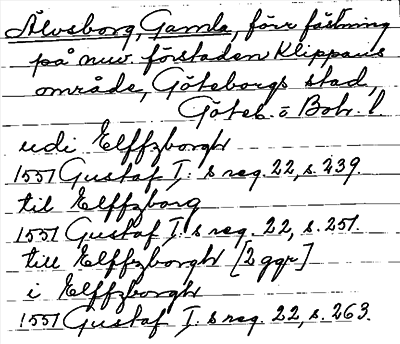 Älvsborg, Gamla, förr fästning
på nuv. förstaden Klippans
område, Göteborgs stad,
Göteb. o Boh. l.
udi Elffzborgh
1551 Gustaf I:s reg. 22, s. 239.
til Elffzborg
1551 Gustaf I:s reg. 22, s. 251.
till Elffzborgh [2 ggr]
i Elffzborgh
1551 Gustaf I:s reg. 22, s. 263.